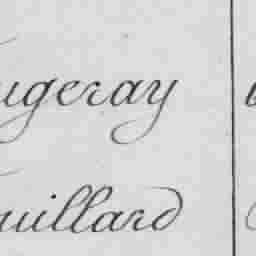 ugeray
uillard